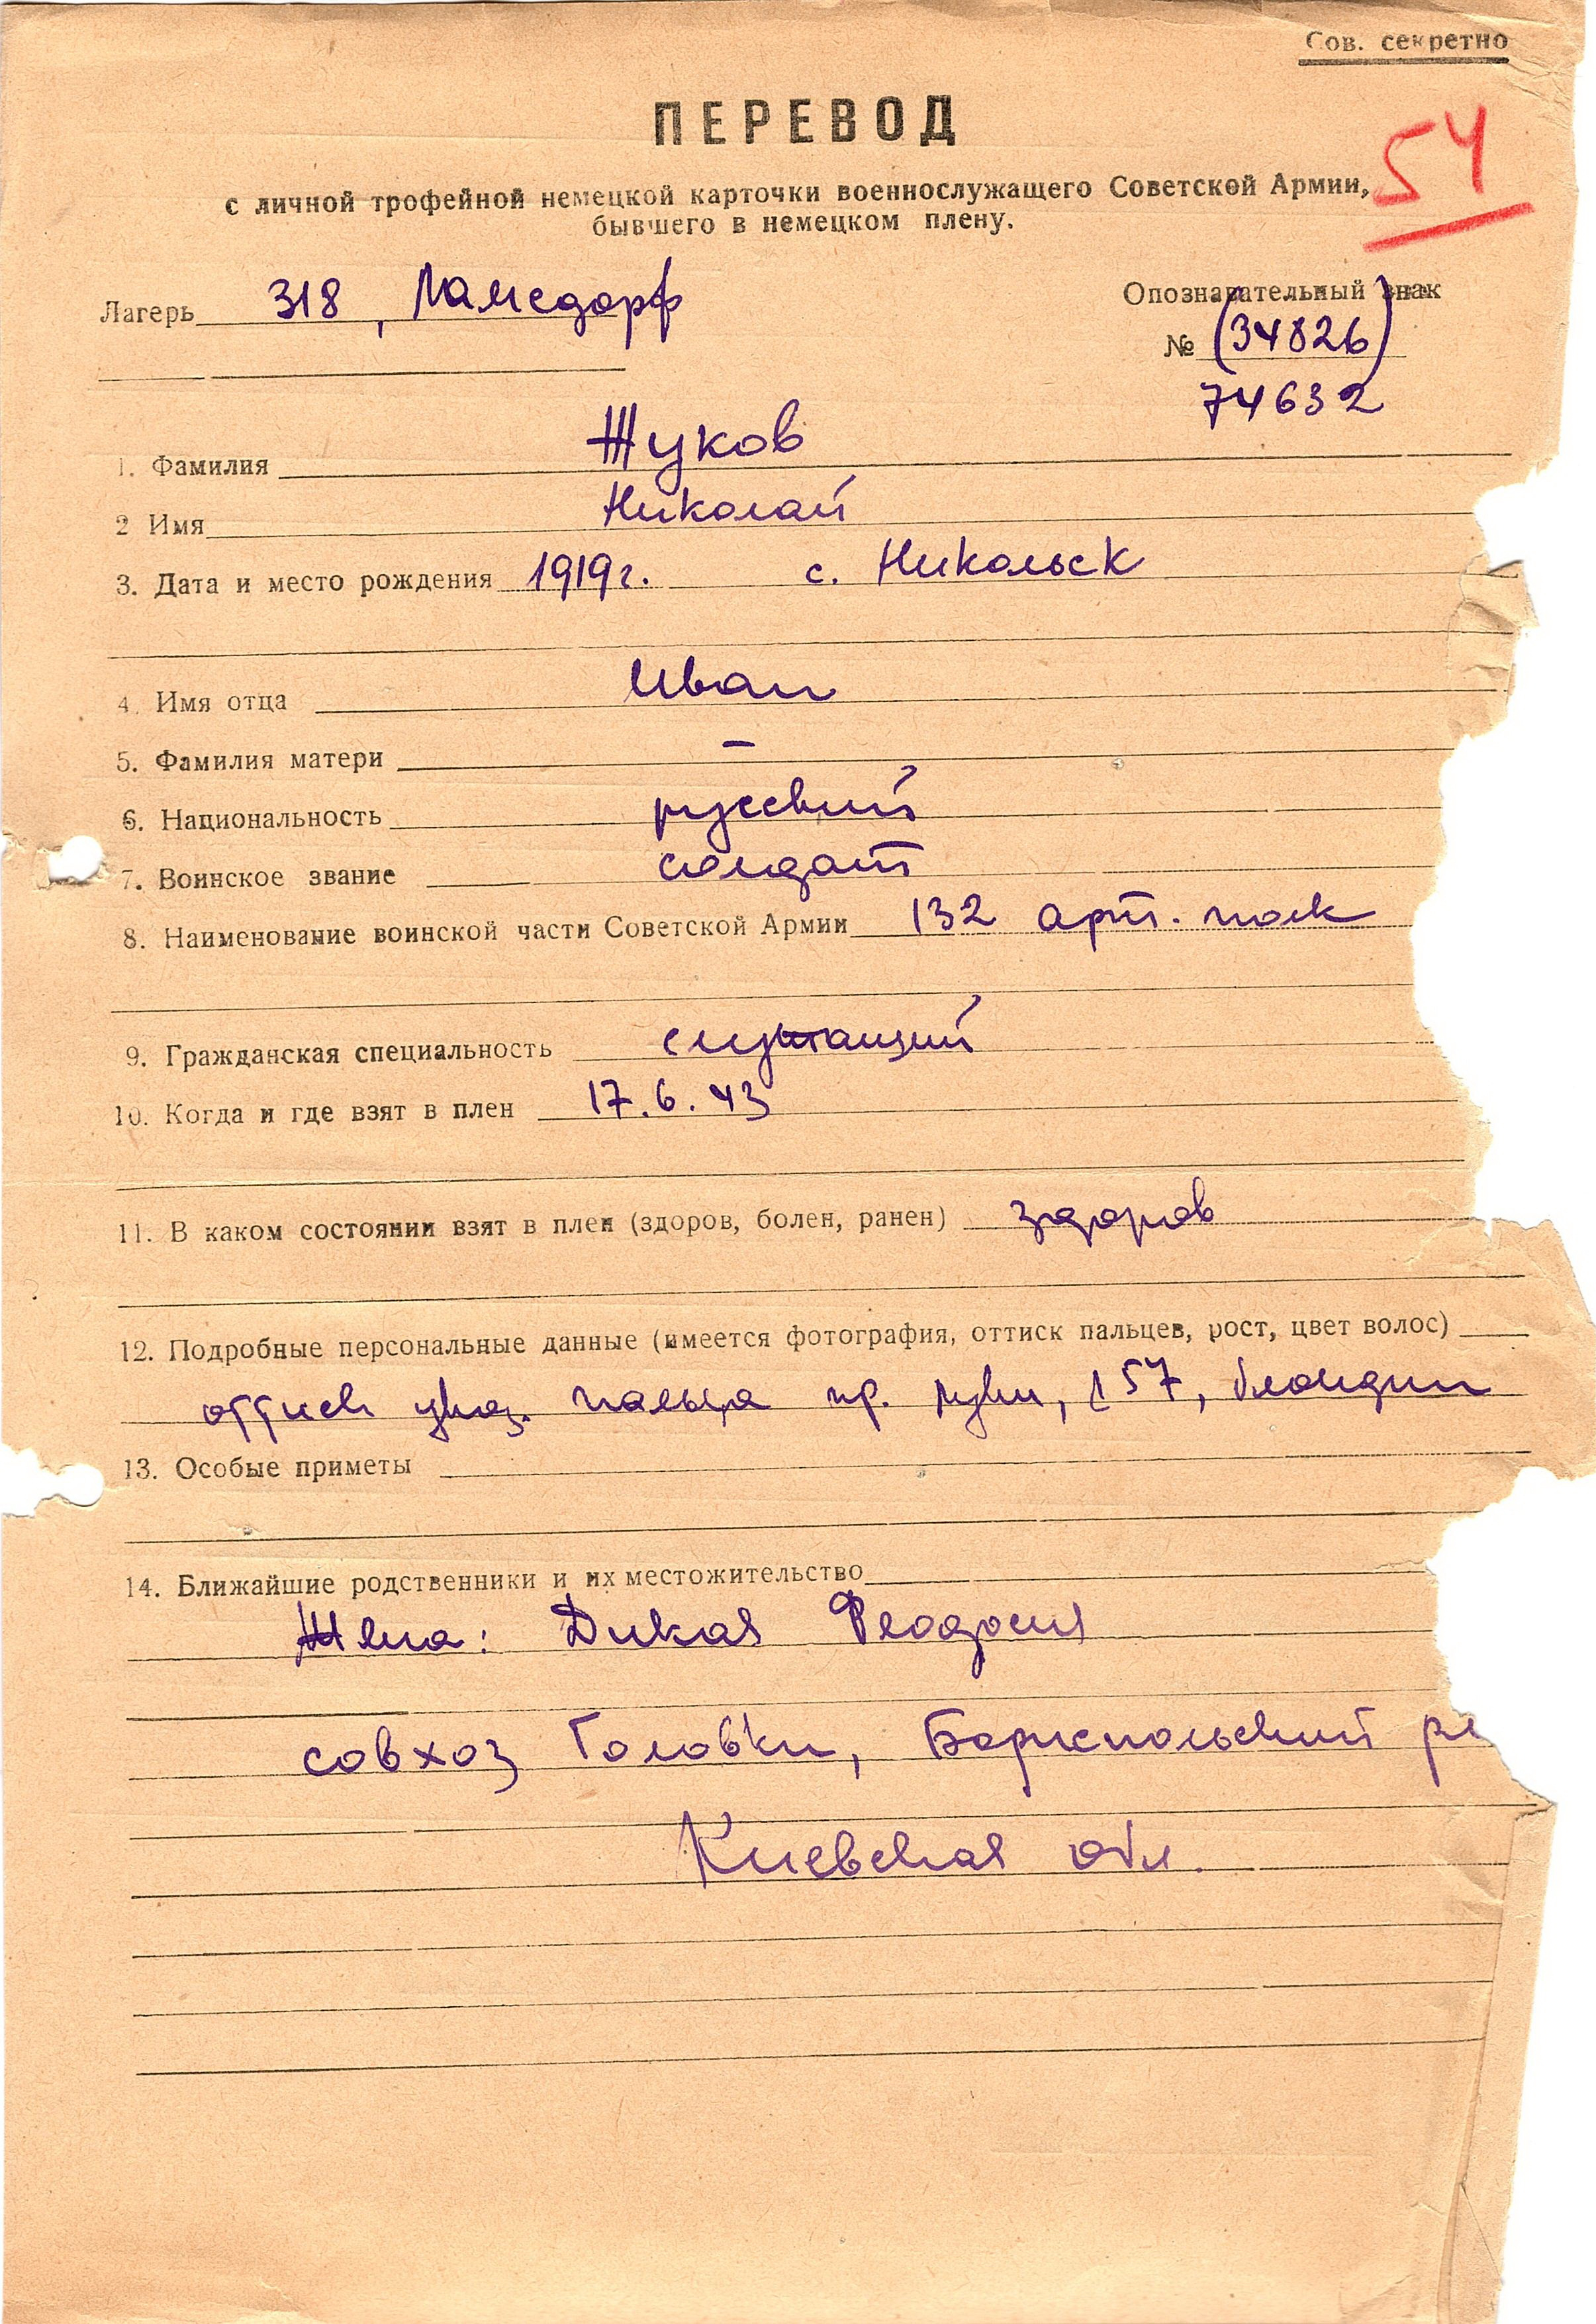 Сов. секретно
ПЕРЕВОД
54
с личной трофейной немецкой карточки военнослужащего Советской Армии,
бывшего в немецком плену.
Лагерь 318, Ламсдорф
Опознавательный знак
№ (34826)
74632
1. Фамилия Жуков
2 Имя Николай
3. Дата и место рождения 1919г. с. Никольск
4. Имя отца Иван
5. Фамилия матери –
6. Национальность русский
7. Воинское звание солдат
8. Наименование воинской части Советской Армии 132 арт. полк
9. Гражданская специальность служащий
10. Когда и где взят в плен 17.6.43
11. В каком состоянии взят в плен (здоров, болен, ранен) здоров
12. Подробные персональные данные (имеется фотография, оттиск пальцев, рост, цвет волос)
оттиск указ. пальца пр. руки, 157, блондин
13. Особые приметы
14. Ближайшие родственники и их местожительство
Жена: Дикая Феодосия
совхоз Головки, Бориспольский
Киевская обл.